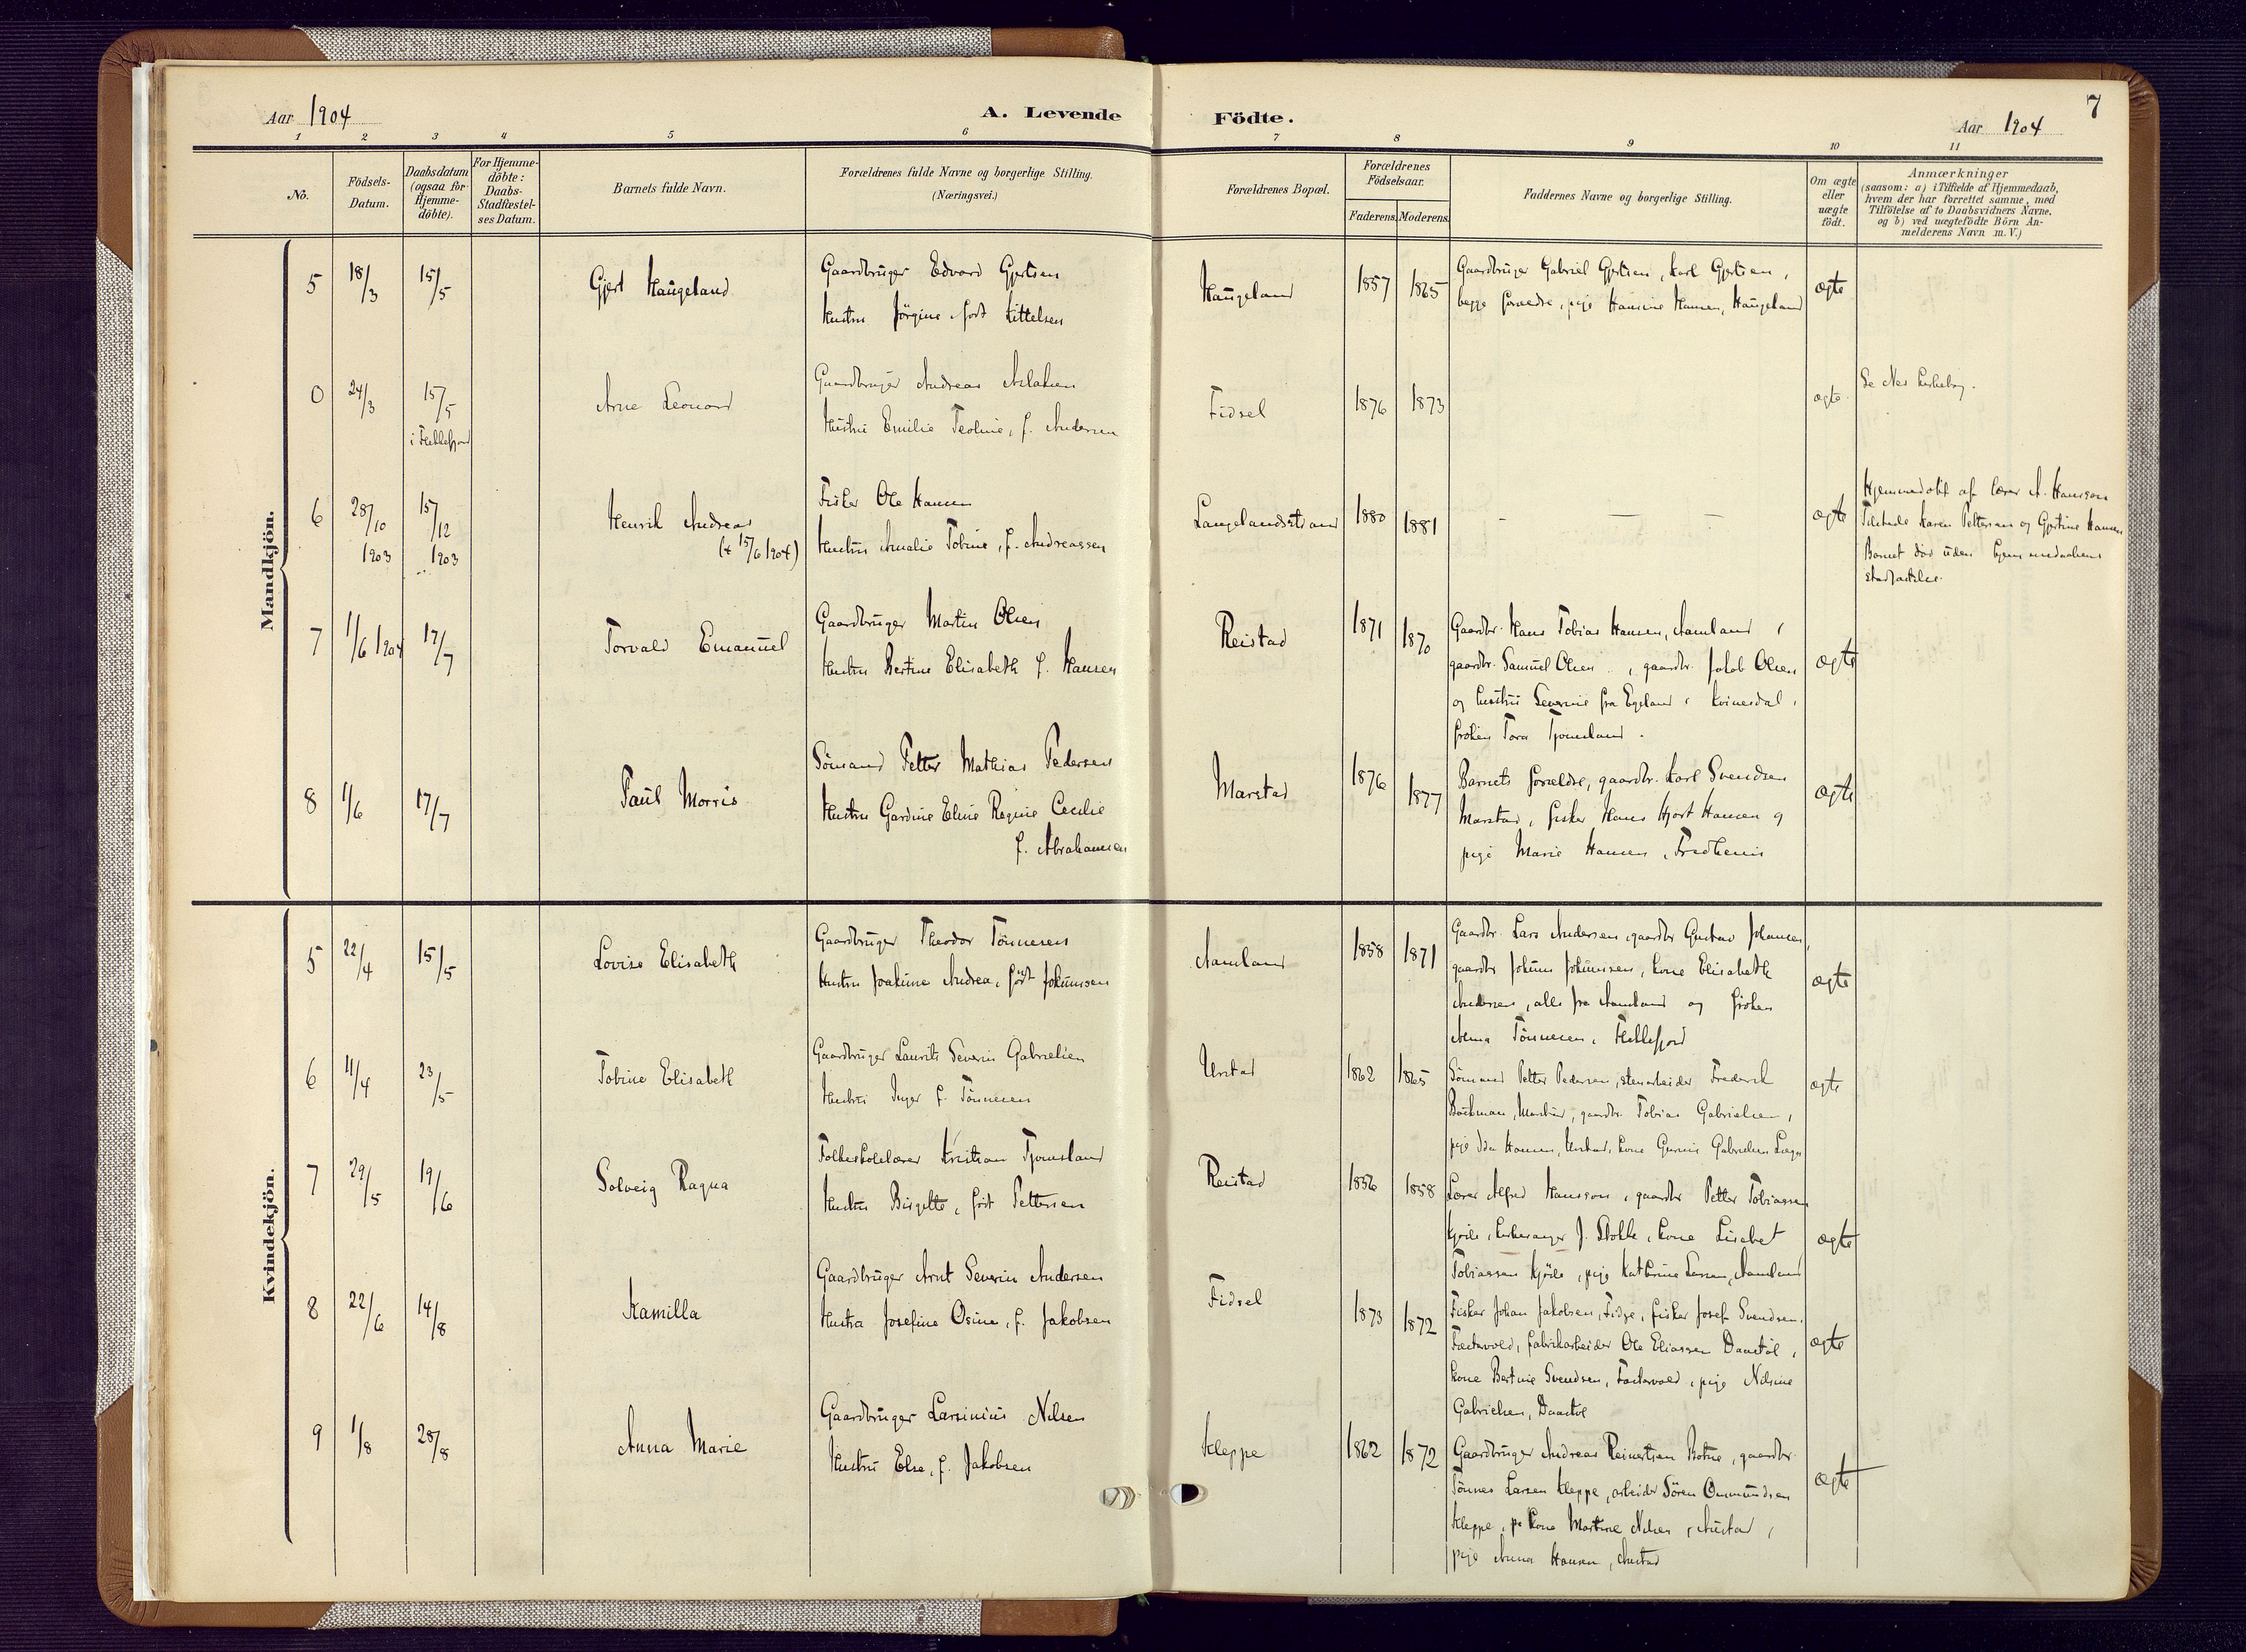 7
Aar 1904
A. Levende Födte.
Aar 1904
1 2 3 4 5 6 7 8 9 10 11
No.
Födsels-
Datum.
Daabsdatum
(ogsaa for
Hjemme-
döbte).
For Hjemme-
döbte:
Daabs-
Stadfæstel-
ses Datum.
Barnets fulde Navn.
Forældrenes fulde Navne og borgerlige Stilling.
(Næringsvei.)
Forældrenes Bopæl.
Forældrenes
Födselsaar.
Faderens. Moderens.
Faddernes Navne og borgerlige Stilling.
Om ægte
eller
uægte
födt.
Anmærkninger
(saasom: a) i Tilfælde af Hjemmedaab,
hvem der har forrettet samme, med
Tilföielse af to Daabsvidners Navne,
og b) ved uægtefödte Börn An-
melderens Navn m. V.)
Mandkjön.
5 18/3 15/5 Gjert Haugeland
Gaardbruger Edvard Gjertsen
Hustru Jörgine, født Kittelsen
Haugeland 1857 1865
Gaardbruger Gabriel Gjertsen, Karl Gjertsen,
begge forældre, pige Hansine Hansen, Haugeland
ægte
0 24/3 15/5
i Flekkefjord
Arne Leonard
Gaardbruger Andreas Aslaksen
Hustru Emilie Teoline, f. Andersen
Fidsel 1876 1873
ægte
Se Nes kirkebog.
6 28/10 1903 15/12 1903
Henrik Andreas
(† 15/6 1904)
Fisker Ole Hansen
Hustru Amalie Tobine, f. Andreassen
Langelandsstrand 1880 1881
- — -
ægte
Hjemmedøbt af lærer A. Hansson
Tilstede Karen Pettersen og Gjertine Hansen
Barnet døde uden hjemmedaabens
stadfæstelse.
7 1/6 1904 17/7 Torvald Emanuel
Gaardbruger Martin Olsen
Hustru Bertine Elisabeth f. Hansen
Reistad 1871 1870
Gaardbr. Hans Tobias Hansen, Aamland,
gaardbr. Samuel Olsen, gaardbr. Jakob Olsen
og hustru Severine fra Egeland i Kvinesdal,
frøken Tora Tjomsland.
ægte
8 1/6 17/7 Paul Morris
Sömand Petter Mathias Pedersen
Hustru Gardine Eline Regine Cecilie
f. Abrahamsen
Marstad 1876 1877
Barnets forældre, gaardbr. Karl Svendsen
Marstad, fisker Hans Hjort Hansen og
pige Marie Hansen, Fredheim
ægte
Kvindekjön.
5 22/4 15/5 Lovise Elisabeth
Gaardbruger Theodor Tönnesen
Hustru Joakime Andrea, född Jokumsen
Aamland 1858 1871
Gaardbr. Lars Andersen, gaardbr Gustav Johansen,
gaardbr Jokum Jokumsen, kone Elisabeth
Andersen, alle fra Aamland og frøken
Alma Tönnesen, Flekkefjord
ægte
6 11/4 23/5 Tobine Elisabeth
Gaardbruger Laurits Severin Gabrielsen
Hustru Inger f. Tönnesen
Urstad 1862 1865
Sömand Petter Pedersen, stenarbeider Frederik
Bøckman, Marstad, gaardbr. Tobias Gabrielsen,
pige Ida Hansen, Urstad, kone Gurine Gabrielsen
ægte
7 29/5 19/6 Solveig Ragna
Folkeskolelærer Kristian Tjomsland
Hustru Birgitte, født Pettersen
Reistad 1856 1858
Lærer Alfred Hansson, gaardbr Petter Tobiassen
Kjøile, kirkesanger J. Stokke, kone Lisabet
Tobiassen Kjöile, pige Kathrine Larsen, Aamland
ægte
8 22/6 14/8 Kamilla
Gaardbruger Arnt Severin Andersen
Hustru Josefine Osine, f. Jakobsen
Fidsel 1873 1872
Fisker Johan Jakobsen, Fidse, fisker Josef Svendsen,
fabrikarbeider Ole Eliassen Daastöl,
kone Bertine Svendsen, pige Nilsine
Gabrielsen, Daastöl
ægte
9 1/8 28/8 Anna Marie
Gaardbruger Larsinius Nilsen
Hustru Else, f. Jakobsen
Kleppe 1862 1872
Gaardbruger Andreas Reinertsen Botne, gaardbr.
Tönnes Larsen Kleppe, arbeider Sören Ommundsen
Kleppe, kone Martine Nilsen, Austad,
pige Anna Hansen, Austad
ægte